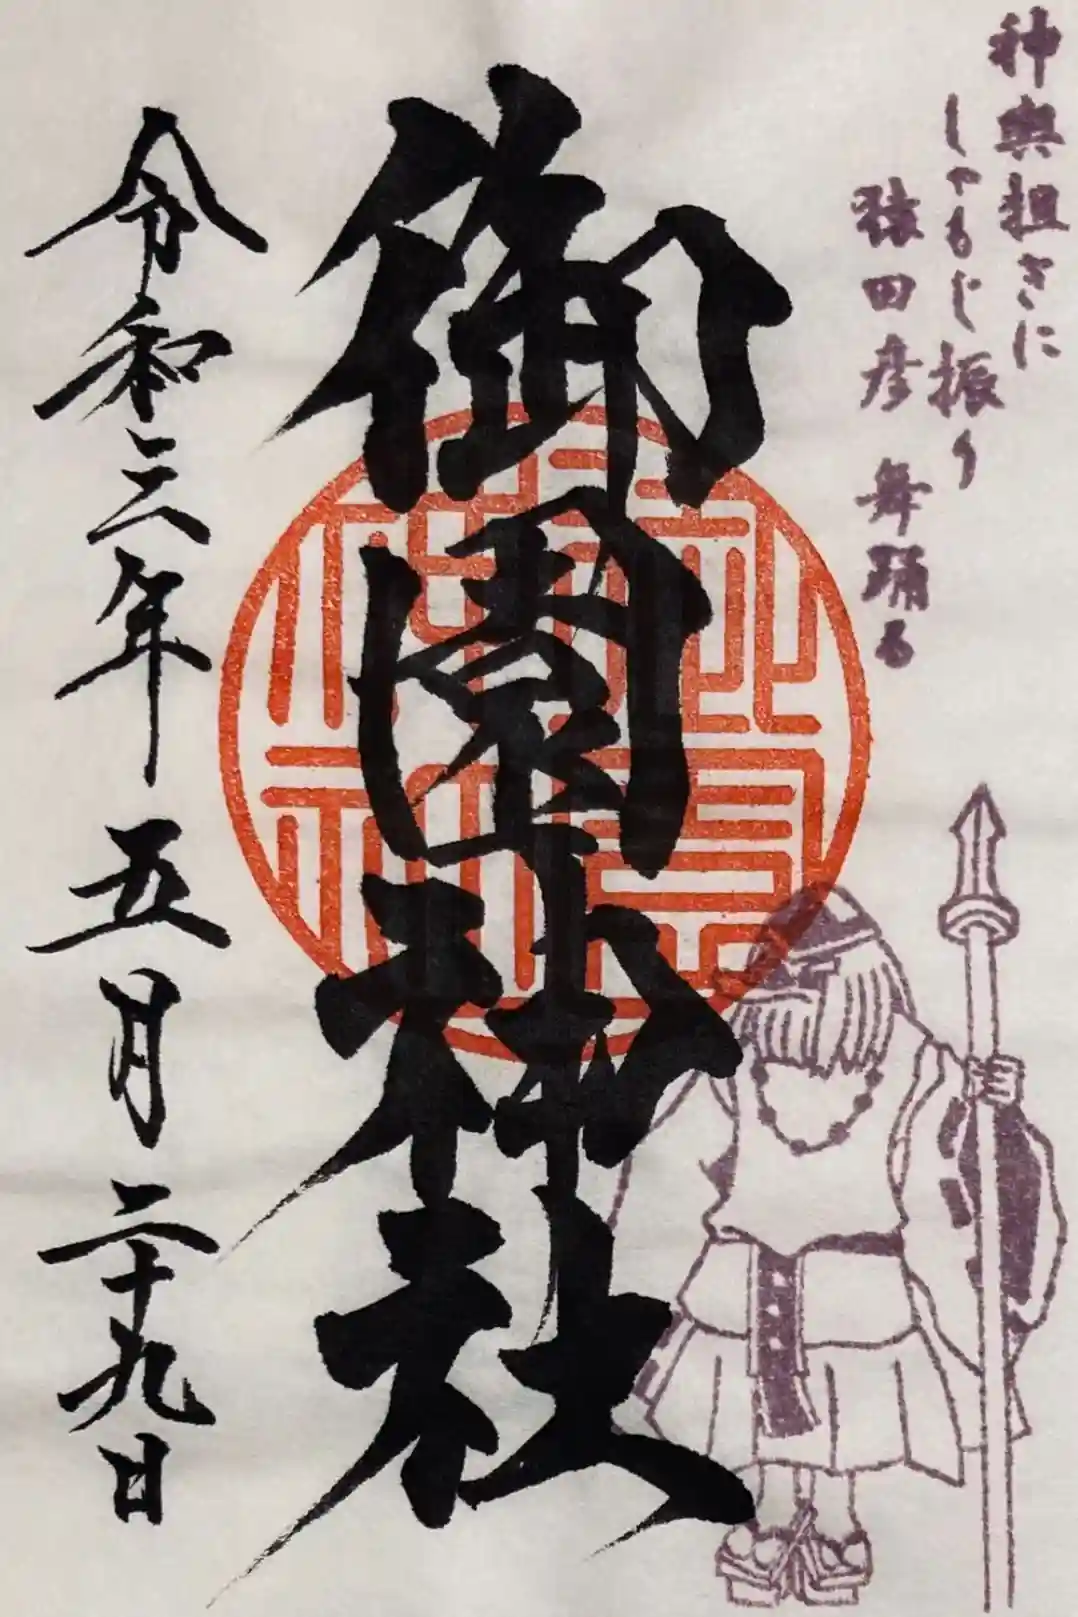 神輿担ぎに
しゃもじ振り
猿田彦 舞踊る
御園神社
令和三年五月二十九日